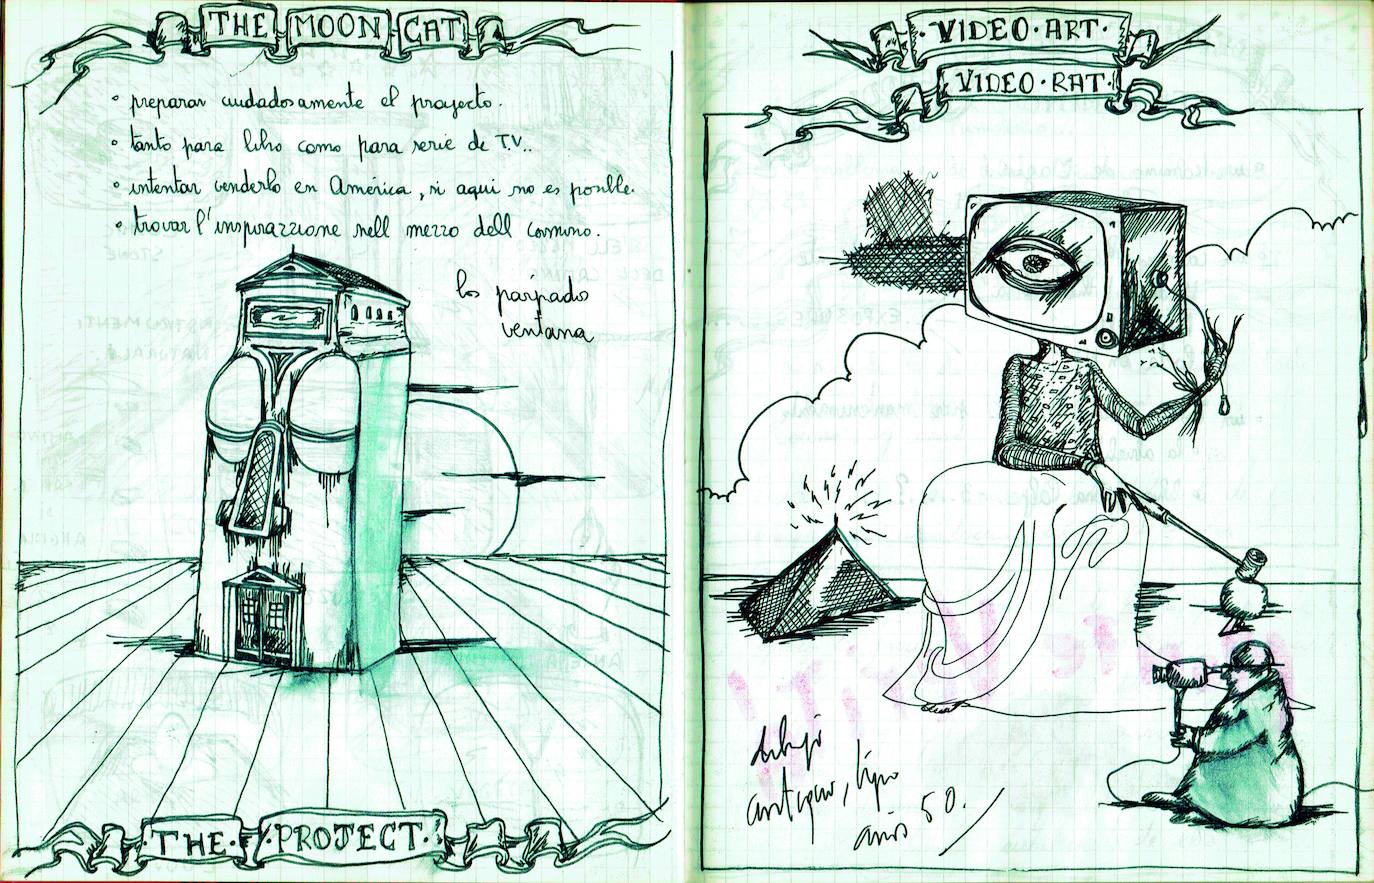 THE MOON CAT
• preparar cuidadosamente el proyecto.
• tanto para libro como para serie de T.V..
• intentar venderlo en América, si aqui no es posible.
• trovar l'inspirazzione nell mezzo dell cammino.
los parpados
ventana
THE PROJECT
VIDEO·ART·
VIDEO·RAT·
dibujo
antiguo, tipo
años 50.